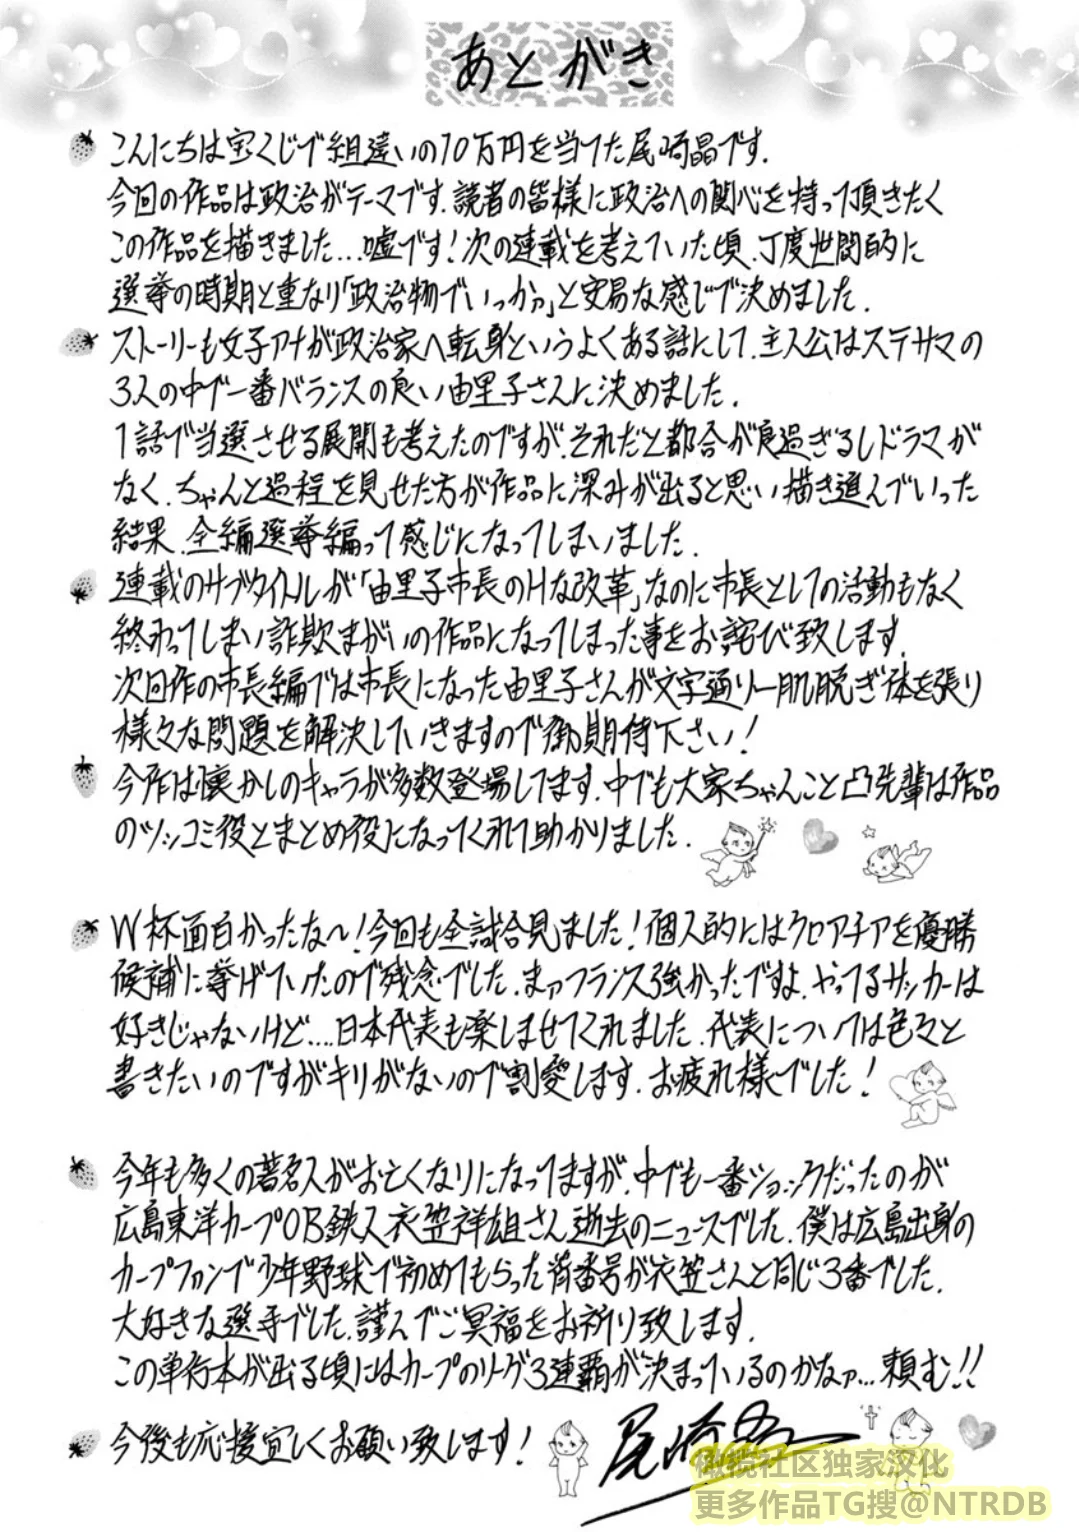 あとがき
こんにちは宝くじで組違いの10万円を当てた尾崎晶です.
今回の作品は政治がテーマです.読者の皆様に政治への関心を持って頂きたく
この作品を描きました…嘘です!次の連載を考えていた頃、丁度世間的に
選挙の時期と重なり「政治物でいっか。」と安易な感じで決めました.
ストーリーも女子アナが政治家へ転身というよくある話にして、主人公はステサマの
3人の中で一番バランスの良い由里子さんに決めました.
1話で当選させる展開も考えたのですが、それだと都合が良過ぎるしドラマが
なく、ちゃんと過程を見せた方が作品に深みが出ると思い描き進んでいった
結果、全編選挙編って感じになってしまいました.
連載のサブタイトルが「由里子市長のHな改革」なのに市長としての活動もなく
終わってしまい詐欺まがいの作品になってしまった事をお詫び致します.
次回作の市長編では市長になった由里子さんが文字通り一肌脱ぎ体を張り
様々な問題を解決していきますので御期待下さい!
今作は懐かしのキャラが多数登場してます、中でも大家ちゃんこと凸先輩は作品
のツッコミ役とまとめ役になってくれて助かりました.
W杯面白かったな〜!今回も全試合見ました!個人的にはクロアチアを優勝
候補に挙げていたので残念でした、まァフランス強かったですよ、やってるサッカーは
好きじゃないけど….日本代表も楽しませてくれました、代表については色々と
書きたいのですがキリがないので割愛します、お疲れ様でした!
今年も多くの著名人がお亡くなりになってますが、中でも一番ショックだったのが
広島東洋カープOB鉄人衣笠祥雄さん逝去のニュースでした、僕は広島出身の
カープファンで少年野球で初めてもらった背番号が衣笠さんと同じ3番でした.
大好きな選手でした、謹んでご冥福をお祈り致します.
この単行本が出る頃にはカープのリーグ3連覇が決まっているのかなァ…頼む!!
今後も応援宜しくお願い致します!
橄榄社区独家汉化
更多作品TG搜@NTRDB